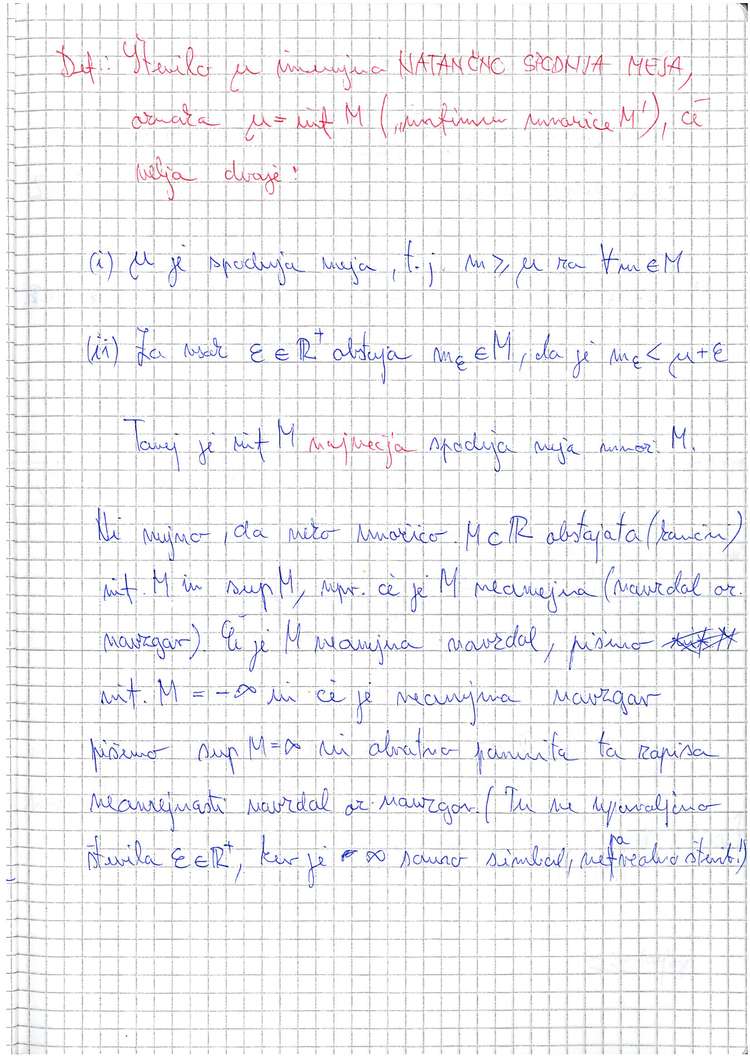 Def.: Število μ imenujna NATANČNC SPODNJA MEJA,
oznaka μ = inf M („infimum množice M"), če
velja dvoje:
(i) μ je spodnja meja, t.j. m ≥ μ za ∀m ∈ M
(ii) Za vsak ε ∈ ℝ⁺ obstaja m_ε ∈ M, da je m_ε < μ + ε
Torej je inf M največja spodnja meja množ. M.
Ni nujno, da neko množico M ⊂ ℝ obstajata (končni)
inf. M in sup M, npr. če je M neomejna (navzdol oz.
navzgor). Če je M neomejna navzdol, pišemo
inf. M = -∞ in če je neomejna navzgor
pišemo sup M = ∞ in obratno pomnita ta zapisa
neomejnosti navzdol oz. navzgor. (Tu ne uporabljamo
števila ε ∈ ℝ⁺, ker je -∞ samo simbol, ne pa realno število!)